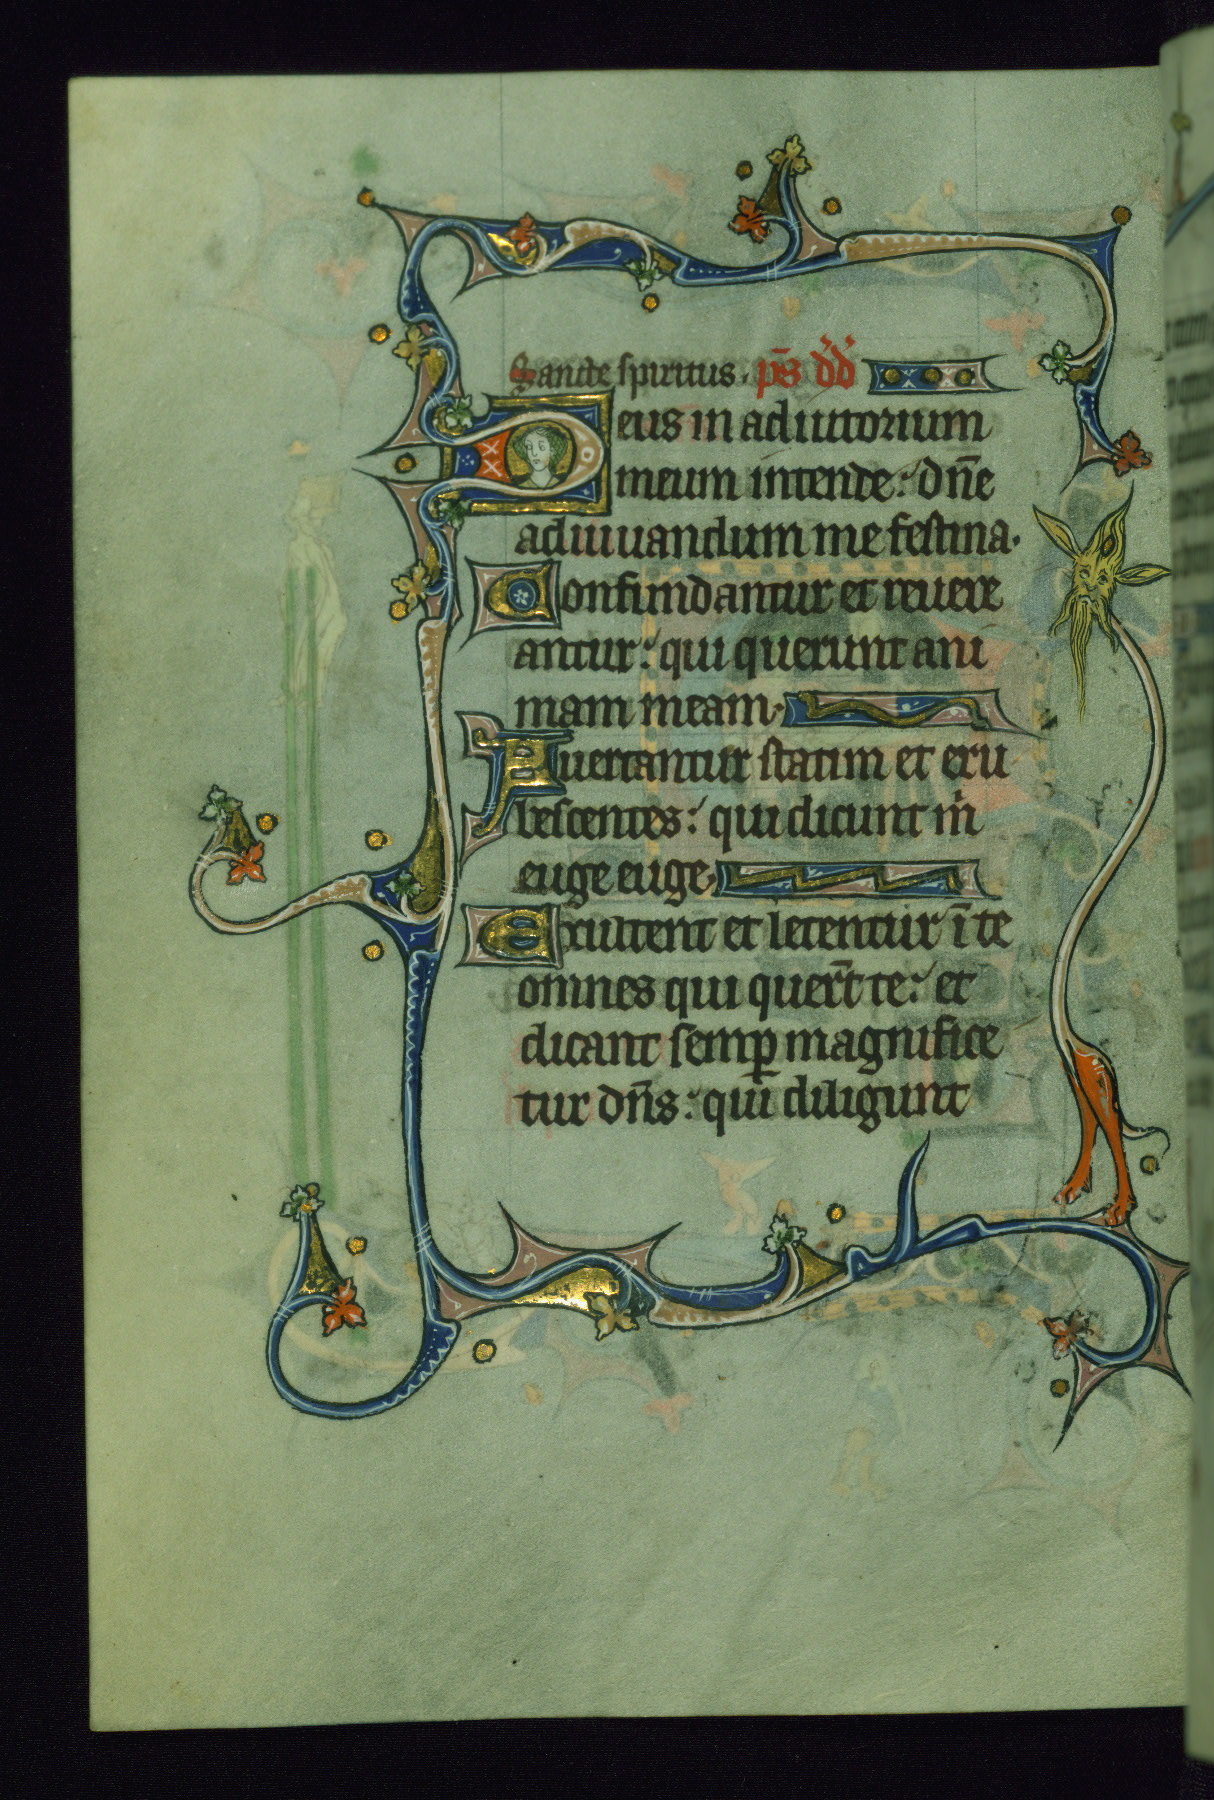 Sancte spiritus. ps̄ d̄d̄
Deus in adiutorium
meum intende: dn̄e
adiuuandum me festina.
Confundantur et reuere
antur: qui querunt ani
mam meam.
Auertantur statim et eru
bescentes: qui dicunt m̄
euge euge.
Exultent et letentur ī te
omnes qui quer̄t te: et
dicant semꝑ magnifice
tur dn̄s: qui diligunt